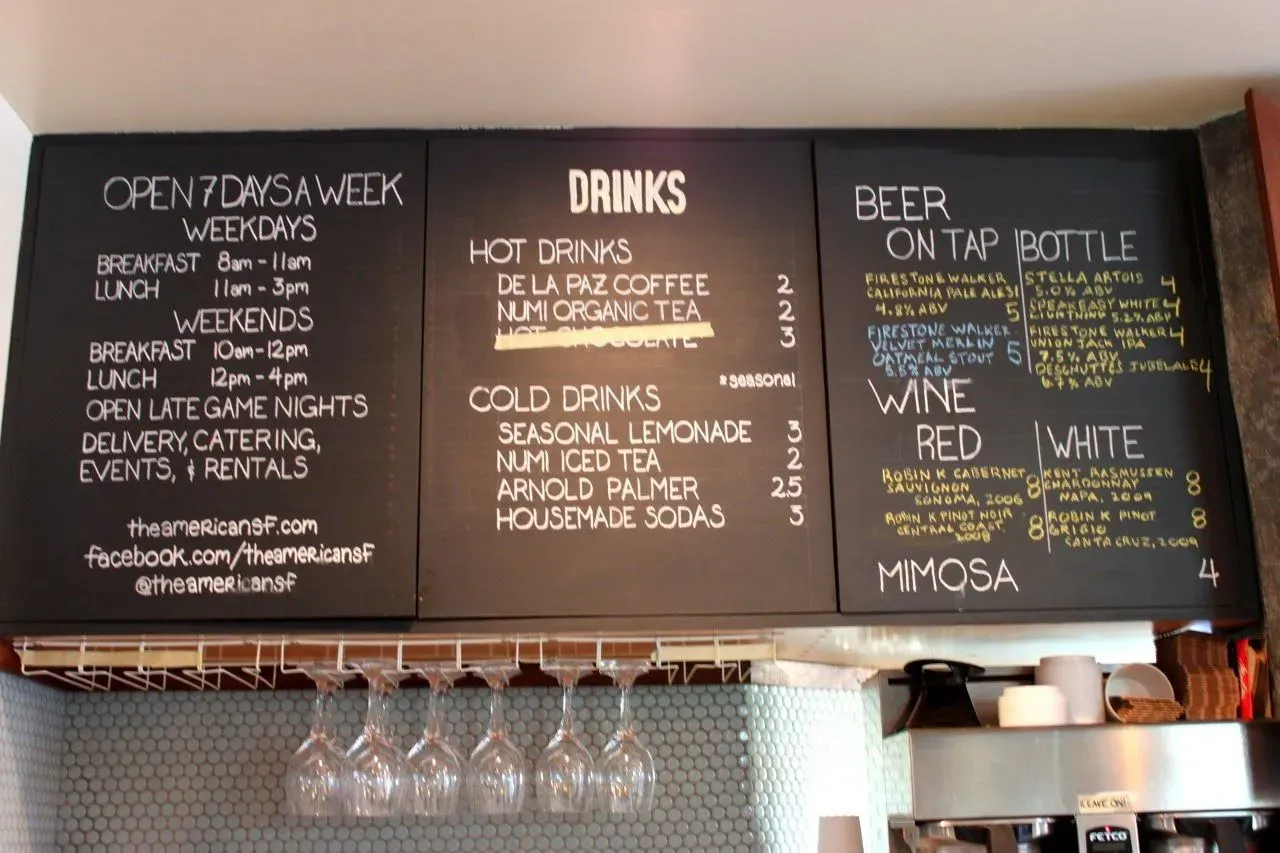 OPEN 7 DAYS A WEEK
WEEKDAYS
BREAKFAST 8am - 11am
LUNCH 11am - 3pm
WEEKENDS
BREAKFAST 10am - 12pm
LUNCH 12pm - 4pm
OPEN LATE GAME NIGHTS
DELIVERY, CATERING,
EVENTS, & RENTALS
theamericansf.com
facebook.com/theamericansf
@theamericansf
DRINKS
HOT DRINKS
DE LA PAZ COFFEE 2
NUMI ORGANIC TEA 2
HOT CHOCOLATE 3
*seasonal
COLD DRINKS
SEASONAL LEMONADE 3
NUMI ICED TEA 2
ARNOLD PALMER 2.5
HOUSEMADE SODAS 3
BEER
ON TAP
FIRESTONE WALKER
CALIFORNIA PALE ALE 31
4.8% ABV 5
FIRESTONE WALKER
VELVET MERLIN
OATMEAL STOUT 5
5.5% ABV
BOTTLE
STELLA ARTOIS 4
5.0% ABV
SPEAKEASY WHITE 4
LIGHTNING 5.2% ABV
FIRESTONE WALKER 4
UNION JACK IPA
7.5% ABV
DESCHUTTES JUBELALE 4
6.7% ABV
WINE
RED
ROBIN K CABERNET
SAUVIGNON 8
SONOMA, 2006
ROBIN K PINOT NOIR 8
CENTRAL COAST
WHITE
KENT RASMUSSEN
CHARDONNAY 8
NAPA, 2009
ROBIN K PINOT 8
GRIGIO
SANTA CRUZ, 2009
MIMOSA 4
LEAVE ON!
FETCO